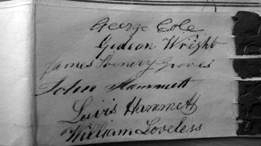 George Cole
Gideon Wright
James Groves
John Hammett
Lewis Hammett
William Loveless